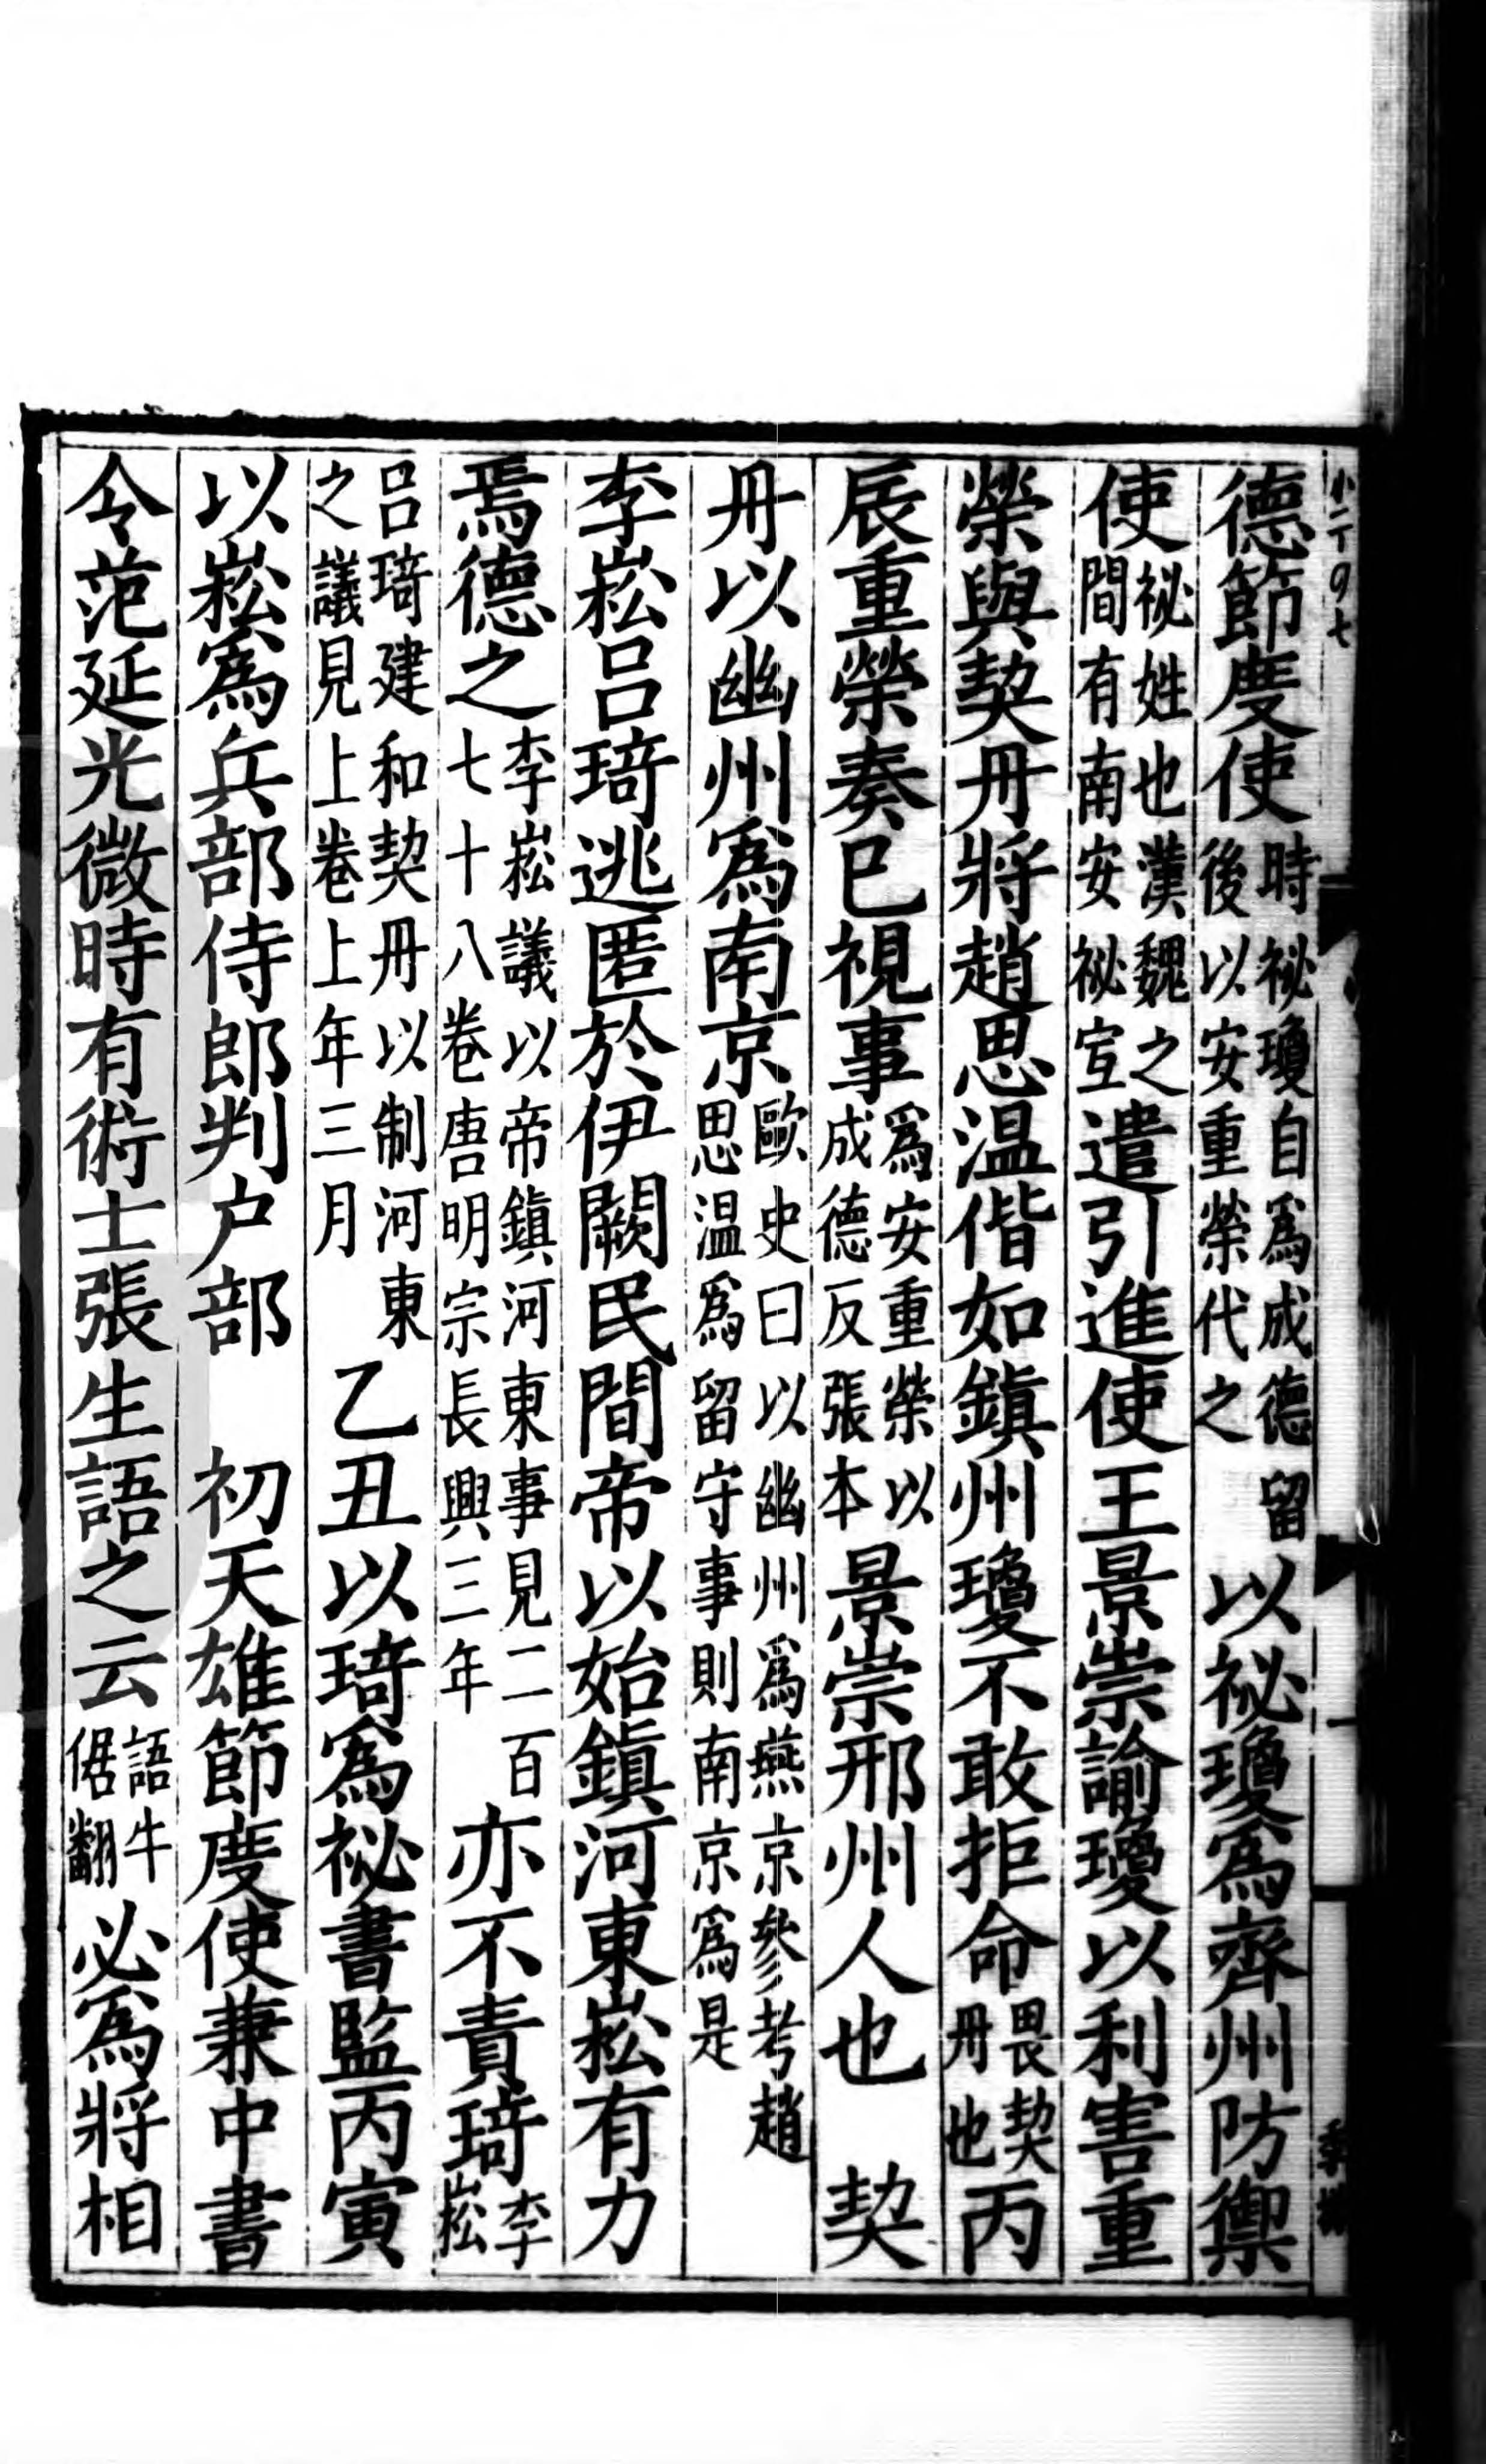 德節度使時祕瓊自爲成德留後以安重榮代之以祕瓊爲齊州防禦
使祕姓也漢魏之間有南安祕宜遣引進使王景崇諭瓊以利害重
榮與契丹將趙思温偕如鎭州瓊不敢拒命畏契丹也丙
辰重榮奏已視事爲安重榮以成德反張本景崇邢州人也　契
丹以幽州爲南京歐史曰以幽州爲燕京參考趙思温爲留守事則南京爲是
李崧呂琦逃匿於伊闕民間帝以始鎭河東崧有力
焉德之李崧議以帝鎭河東事見二百七十八卷唐明宗長興三年亦不責琦李崧
呂琦建和契丹以制河東之議見上卷上年三月乙丑以琦爲祕書監丙寅
以崧爲兵部侍郎判户部　初天雄節度使兼中書
令范延光微時有術士張生語之云語牛倨翻必爲將相